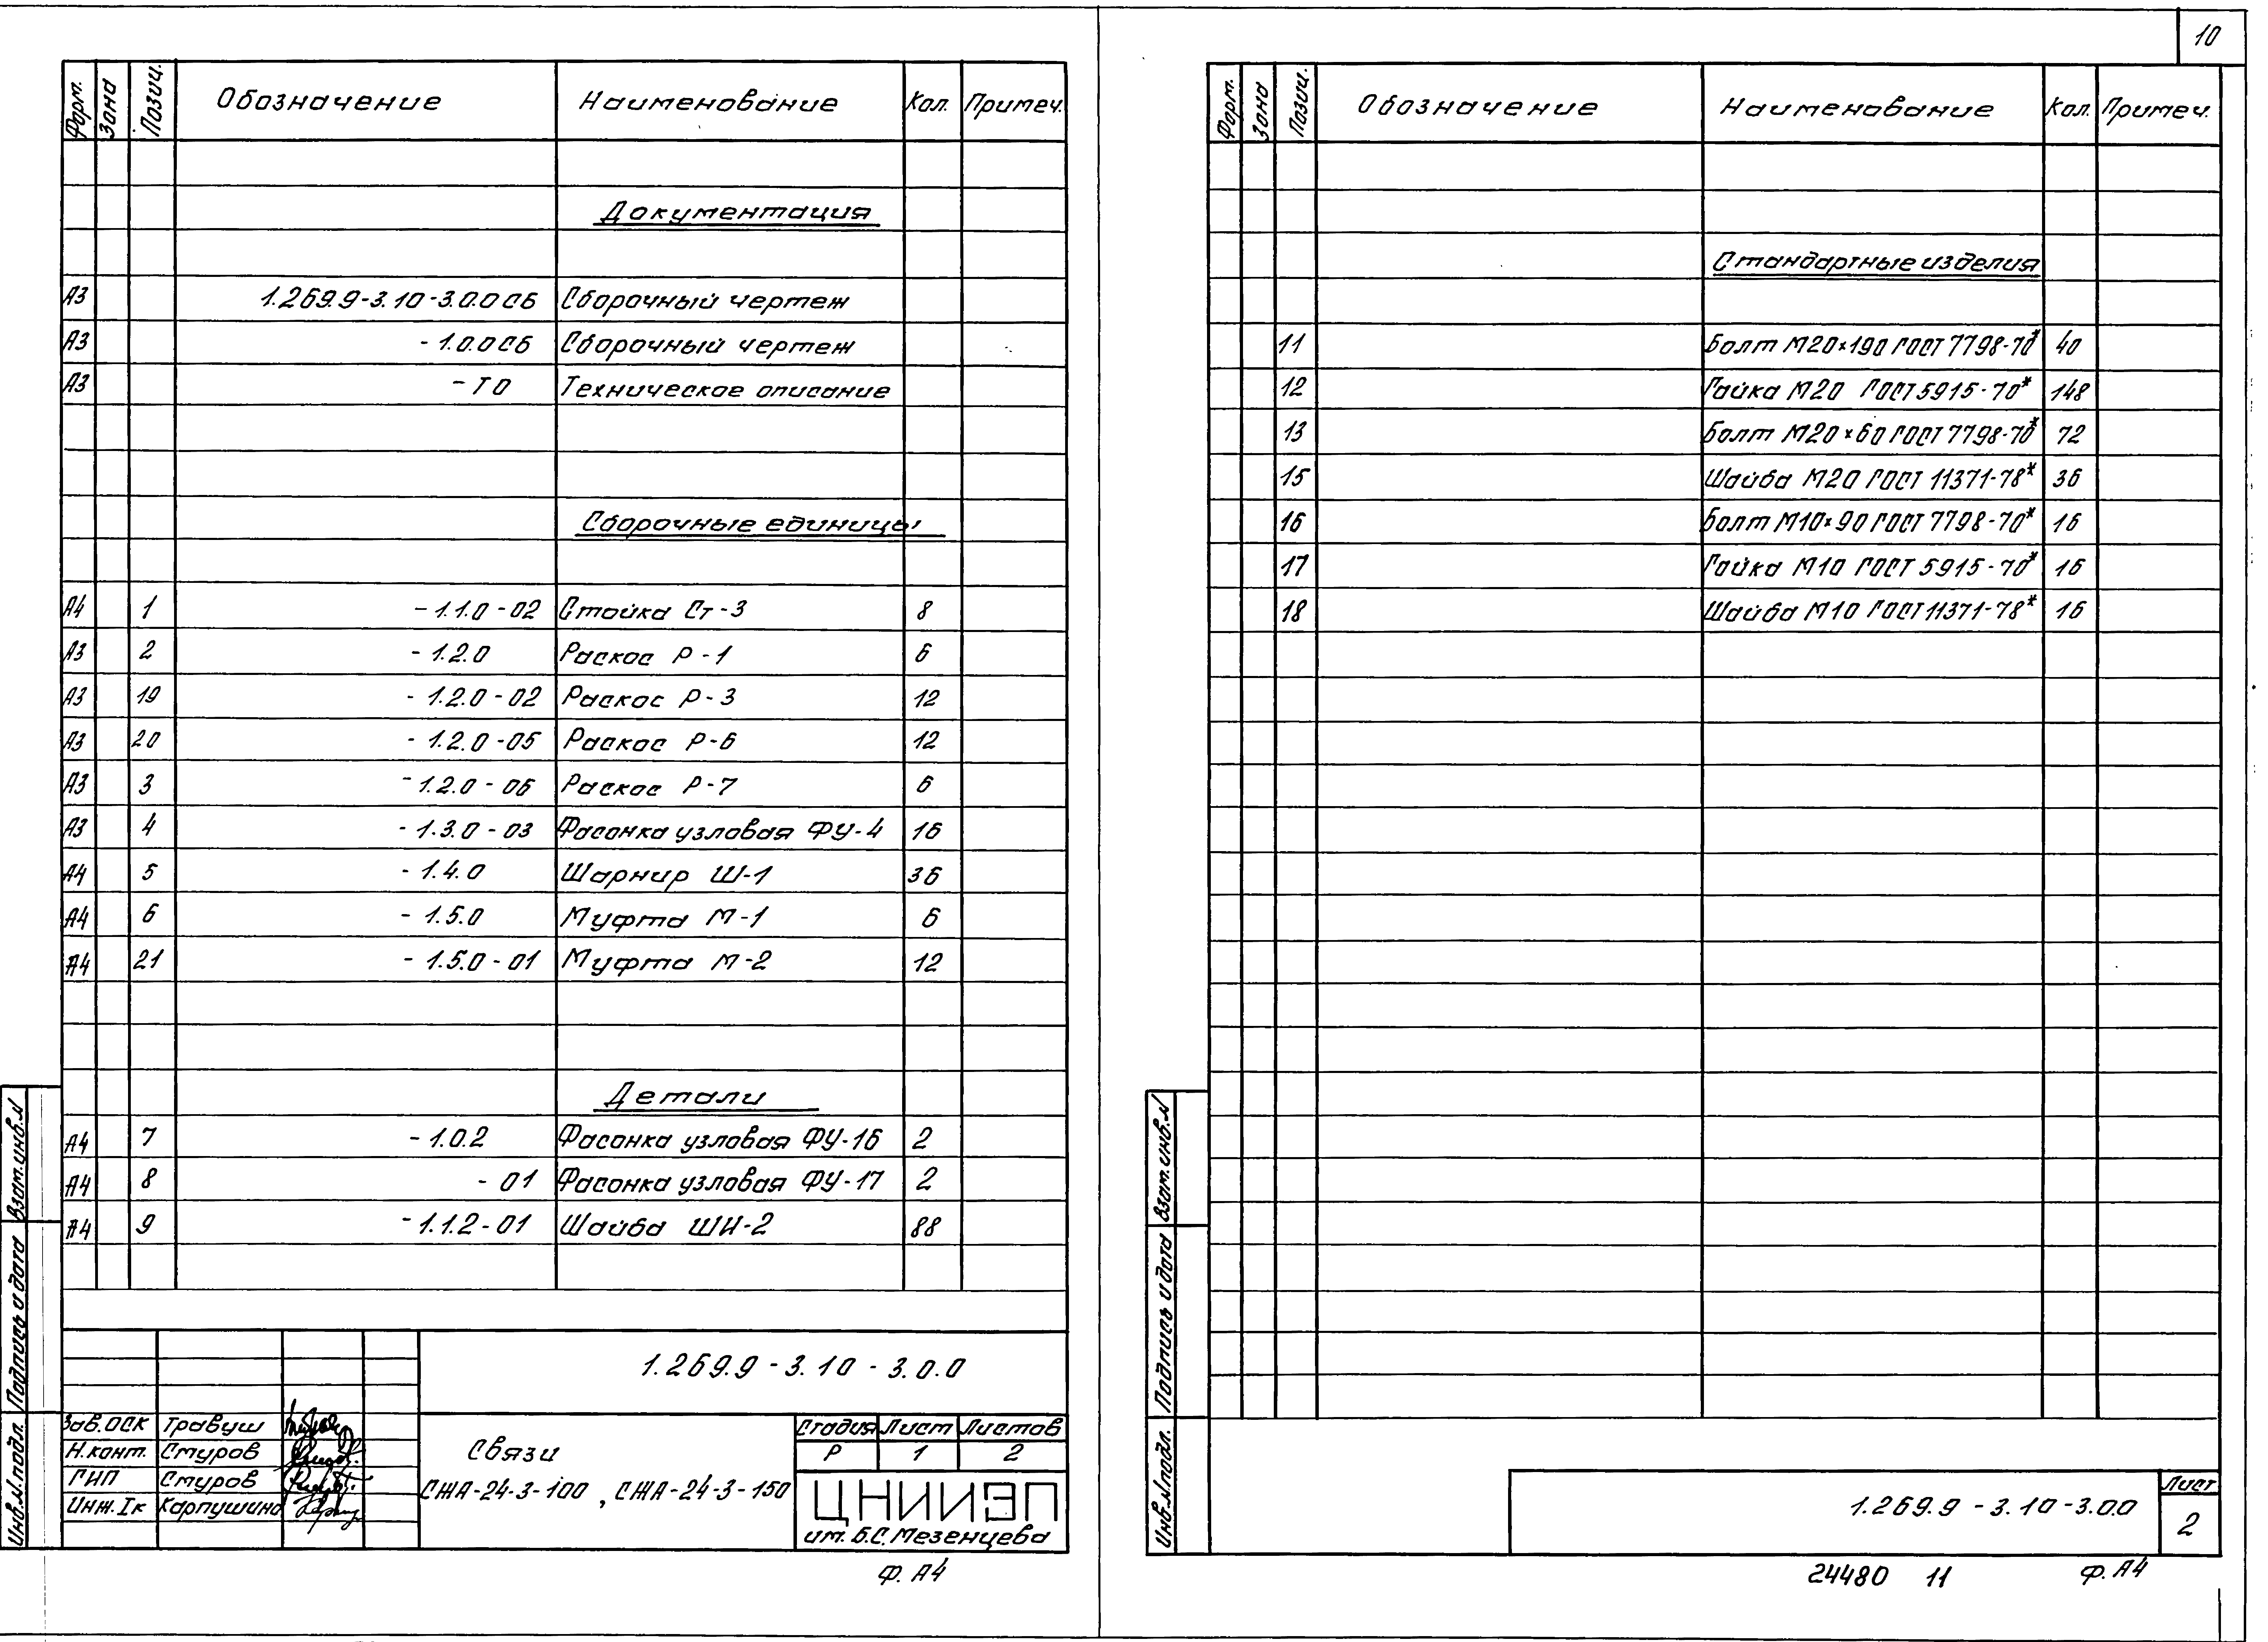 10
Форм. Зона Позиц. Обозначение Наименование Кол. Примеч.
Документация
А3 1.269.9-3.10-3.0.0СБ Сборочный чертеж
А3 -1.0.0СБ Сборочный чертеж
А3 -ТО Техническое описание
Сборочные единицы
А4 1 -1.1.0-02 Стойка Ст-3 8
А3 2 -1.2.0 Раскос Р-1 6
А3 19 -1.2.0-02 Раскос Р-3 12
А3 20 -1.2.0-05 Раскос Р-6 12
А3 3 -1.2.0-06 Раскос Р-7 6
А3 4 -1.3.0-03 Фасонка узловая ФУ-4 16
А4 5 -1.4.0 Шарнир Ш-1 36
А4 6 -1.5.0 Муфта М-1 6
А4 21 -1.5.0-01 Муфта М-2 12
Детали
А4 7 -1.0.2 Фасонка узловая ФУ-16 2
А4 8 -01 Фасонка узловая ФУ-17 2
А4 9 -1.1.2-01 Шайба ШИ-2 88
Взам.инв.N
Подпись и дата
Инв.N.подл.
1.269.9-3.10-3.0.0
Зав.ОСК Травуш
Н.конт. Стуров
ГИП Стуров
Инж.Iк Карпушина
Связи
СЖА-24-3-100, СЖА-24-3-150
Стадия Лист Листов
Р 1 2
ЦНИИЭП
им. Б.С. Мезенцева
Ф. А4
Форм. Зона Позиц. Обозначение Наименование Кол. Примеч.
Стандартные изделия
11 Болт М20×190 ГОСТ 7798-70* 40
12 Гайка М20 ГОСТ 5915-70* 148
13 Болт М20×60 ГОСТ 7798-70* 72
15 Шайба М20 ГОСТ 11371-78* 36
16 Болт М10×90 ГОСТ 7798-70* 16
17 Гайка М10 ГОСТ 5915-70* 16
18 Шайба М10 ГОСТ 11371-78* 16
Взам.инв.N
Подпись и дата
Инв.N.подл.
1.269.9-3.10-3.0.0
Лист
2
24480 11 Ф. А4